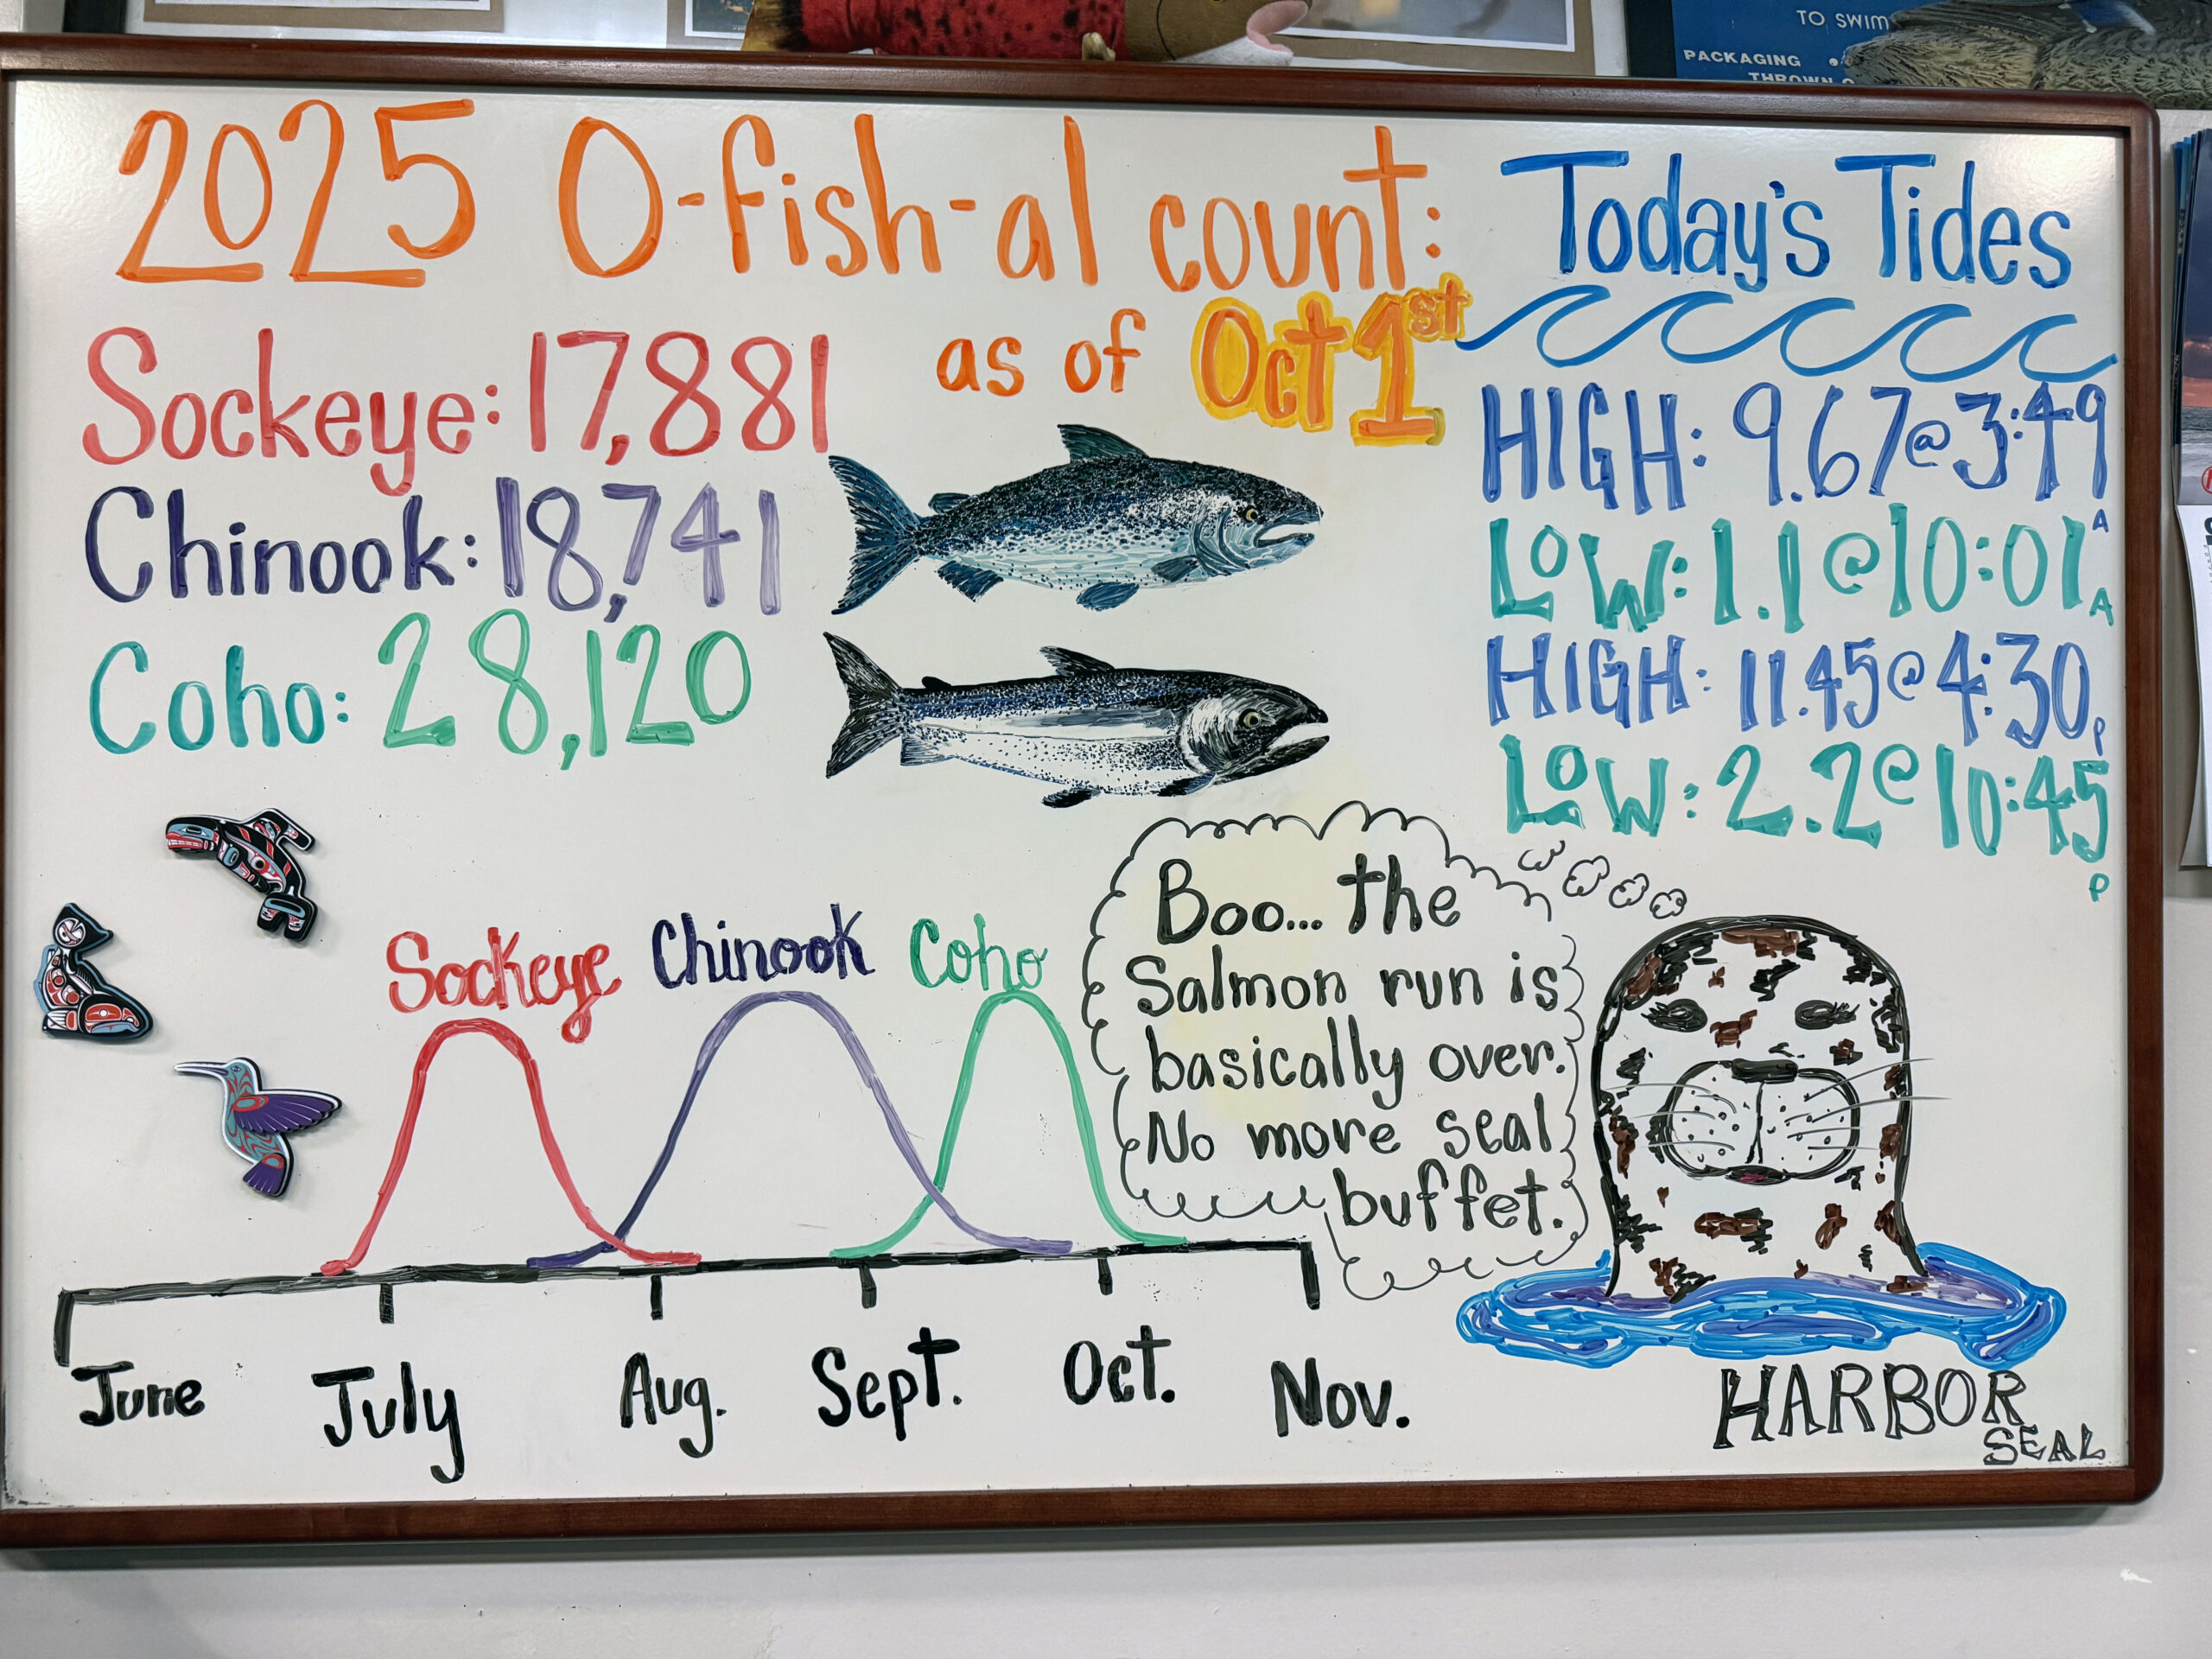 TO SWIM
PACKAGING
THROWN
2025 O-fish-al count:
as of Oct 1st
Sockeye: 17,881
Chinook: 18,741
Coho: 28,120
Today's Tides
HIGH: 9.67@3:49 A
LOW: 1.1@10:01 A
HIGH: 11.45@4:30 P
LOW: 2.2@10:45 P
Sockeye Chinook Coho
June July Aug. Sept. Oct. Nov.
Boo... the
Salmon run is
basically over.
No more seal
buffet.
HARBOR
SEAL